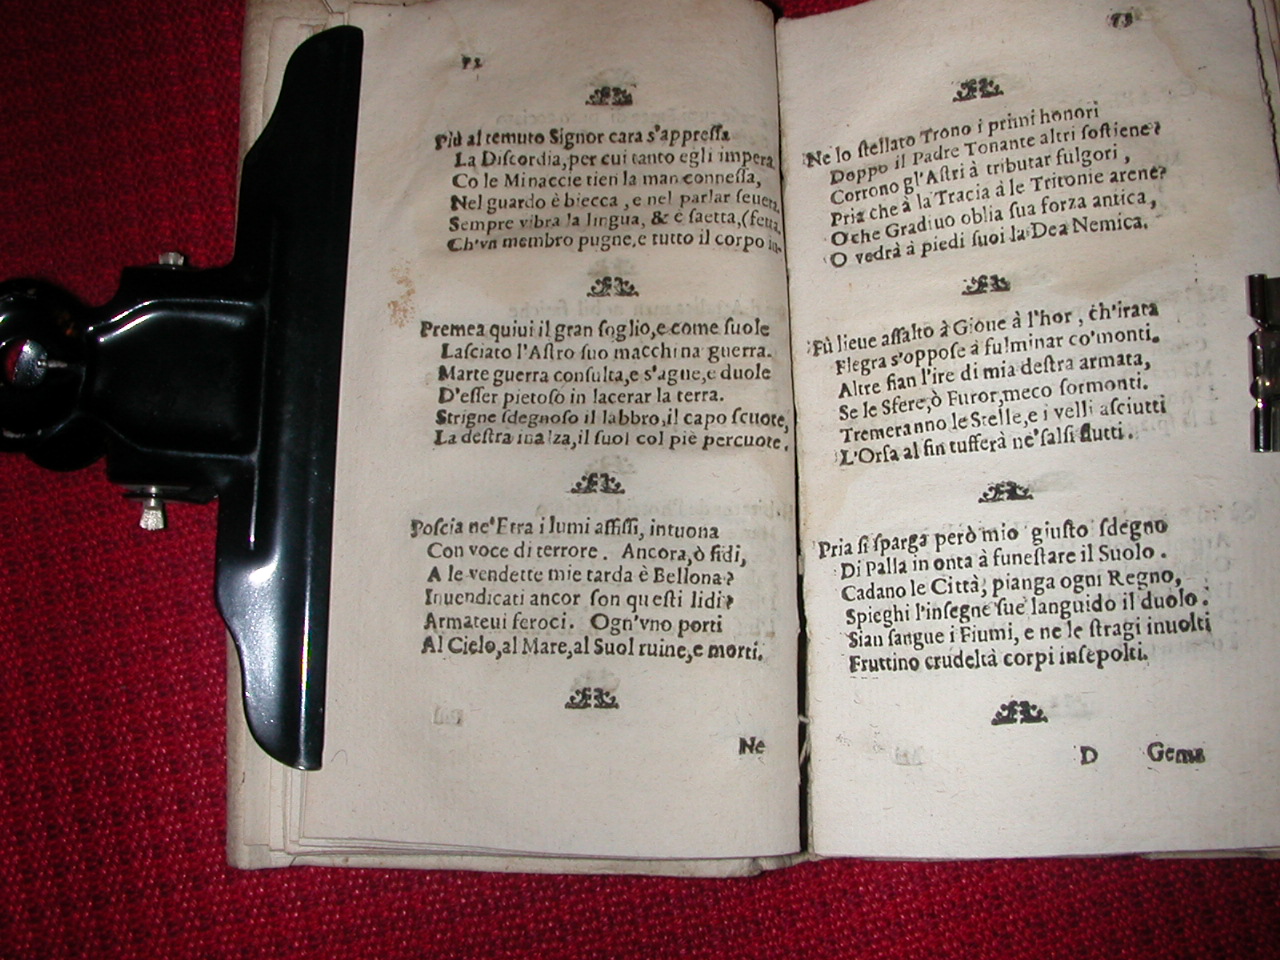 72
Più al temuto Signor cara s'appreſſa
La Diſcordia, per cui tanto egli impera
Co le Minaccie tien la man conneſſa,
Nel guardo è biecca, e nel parlar ſeuera.
Sempre vibra la lingua, & è ſaetta, (feſta,
Ch'vn membro pugne, e tutto il corpo in-
Premea quiui il gran ſoglio, e come ſuole
Laſciato l'Aſtro ſuo macchina guerra.
Marte guerra conſulta, e s'ague, e duole
D'eſſer pietoſo in lacerar la terra.
Strigne ſdegnoſo il labbro, il capo ſcuote,
La deſtra inalza, il ſuol col piè percuote.
Poſcia ne'Etra i lumi affiſſi, intuona
Con voce di terrore. Ancora, ò fidi,
A le vendette mie tarda è Bellona?
Inuendicati ancor ſon queſti lidi?
Armateui feroci. Ogn'vno porti
Al Cielo, al Mare, al Suol ruine, e morti.
Ne
73
Ne lo ſtellato Trono i primi honori
Doppo il Padre Tonante altri ſoſtiene?
Corrono gl'Aſtri à tributar fulgori,
Pria che à la Tracia à le Tritonie arene?
O che Gradiuo oblia ſua forza antica,
O vedrà a piedi ſuoi la Dea Nemica.
Fù lieue aſſalto à Gioue à l'hor, ch'irata
Flegra s'oppoſe à fulminar co'monti.
Altre fian l'ire di mia deſtra armata,
Se le Sfere, ò Furor, meco ſormonti.
Tremeranno le Stelle, e i velli aſciutti
L'Orſa al fin tufferà ne'falſi flutti.
Pria ſi ſparga però mio giuſto ſdegno
Di Palla in onta à funeſtare il Suolo.
Cadano le Città, pianga ogni Regno,
Spieghi l'inſegne ſue languido il duolo.
Sian ſangue i Fiumi, e ne le ſtragi inuolti
Fruttino crudeltà corpi inſepolti.
D Gema